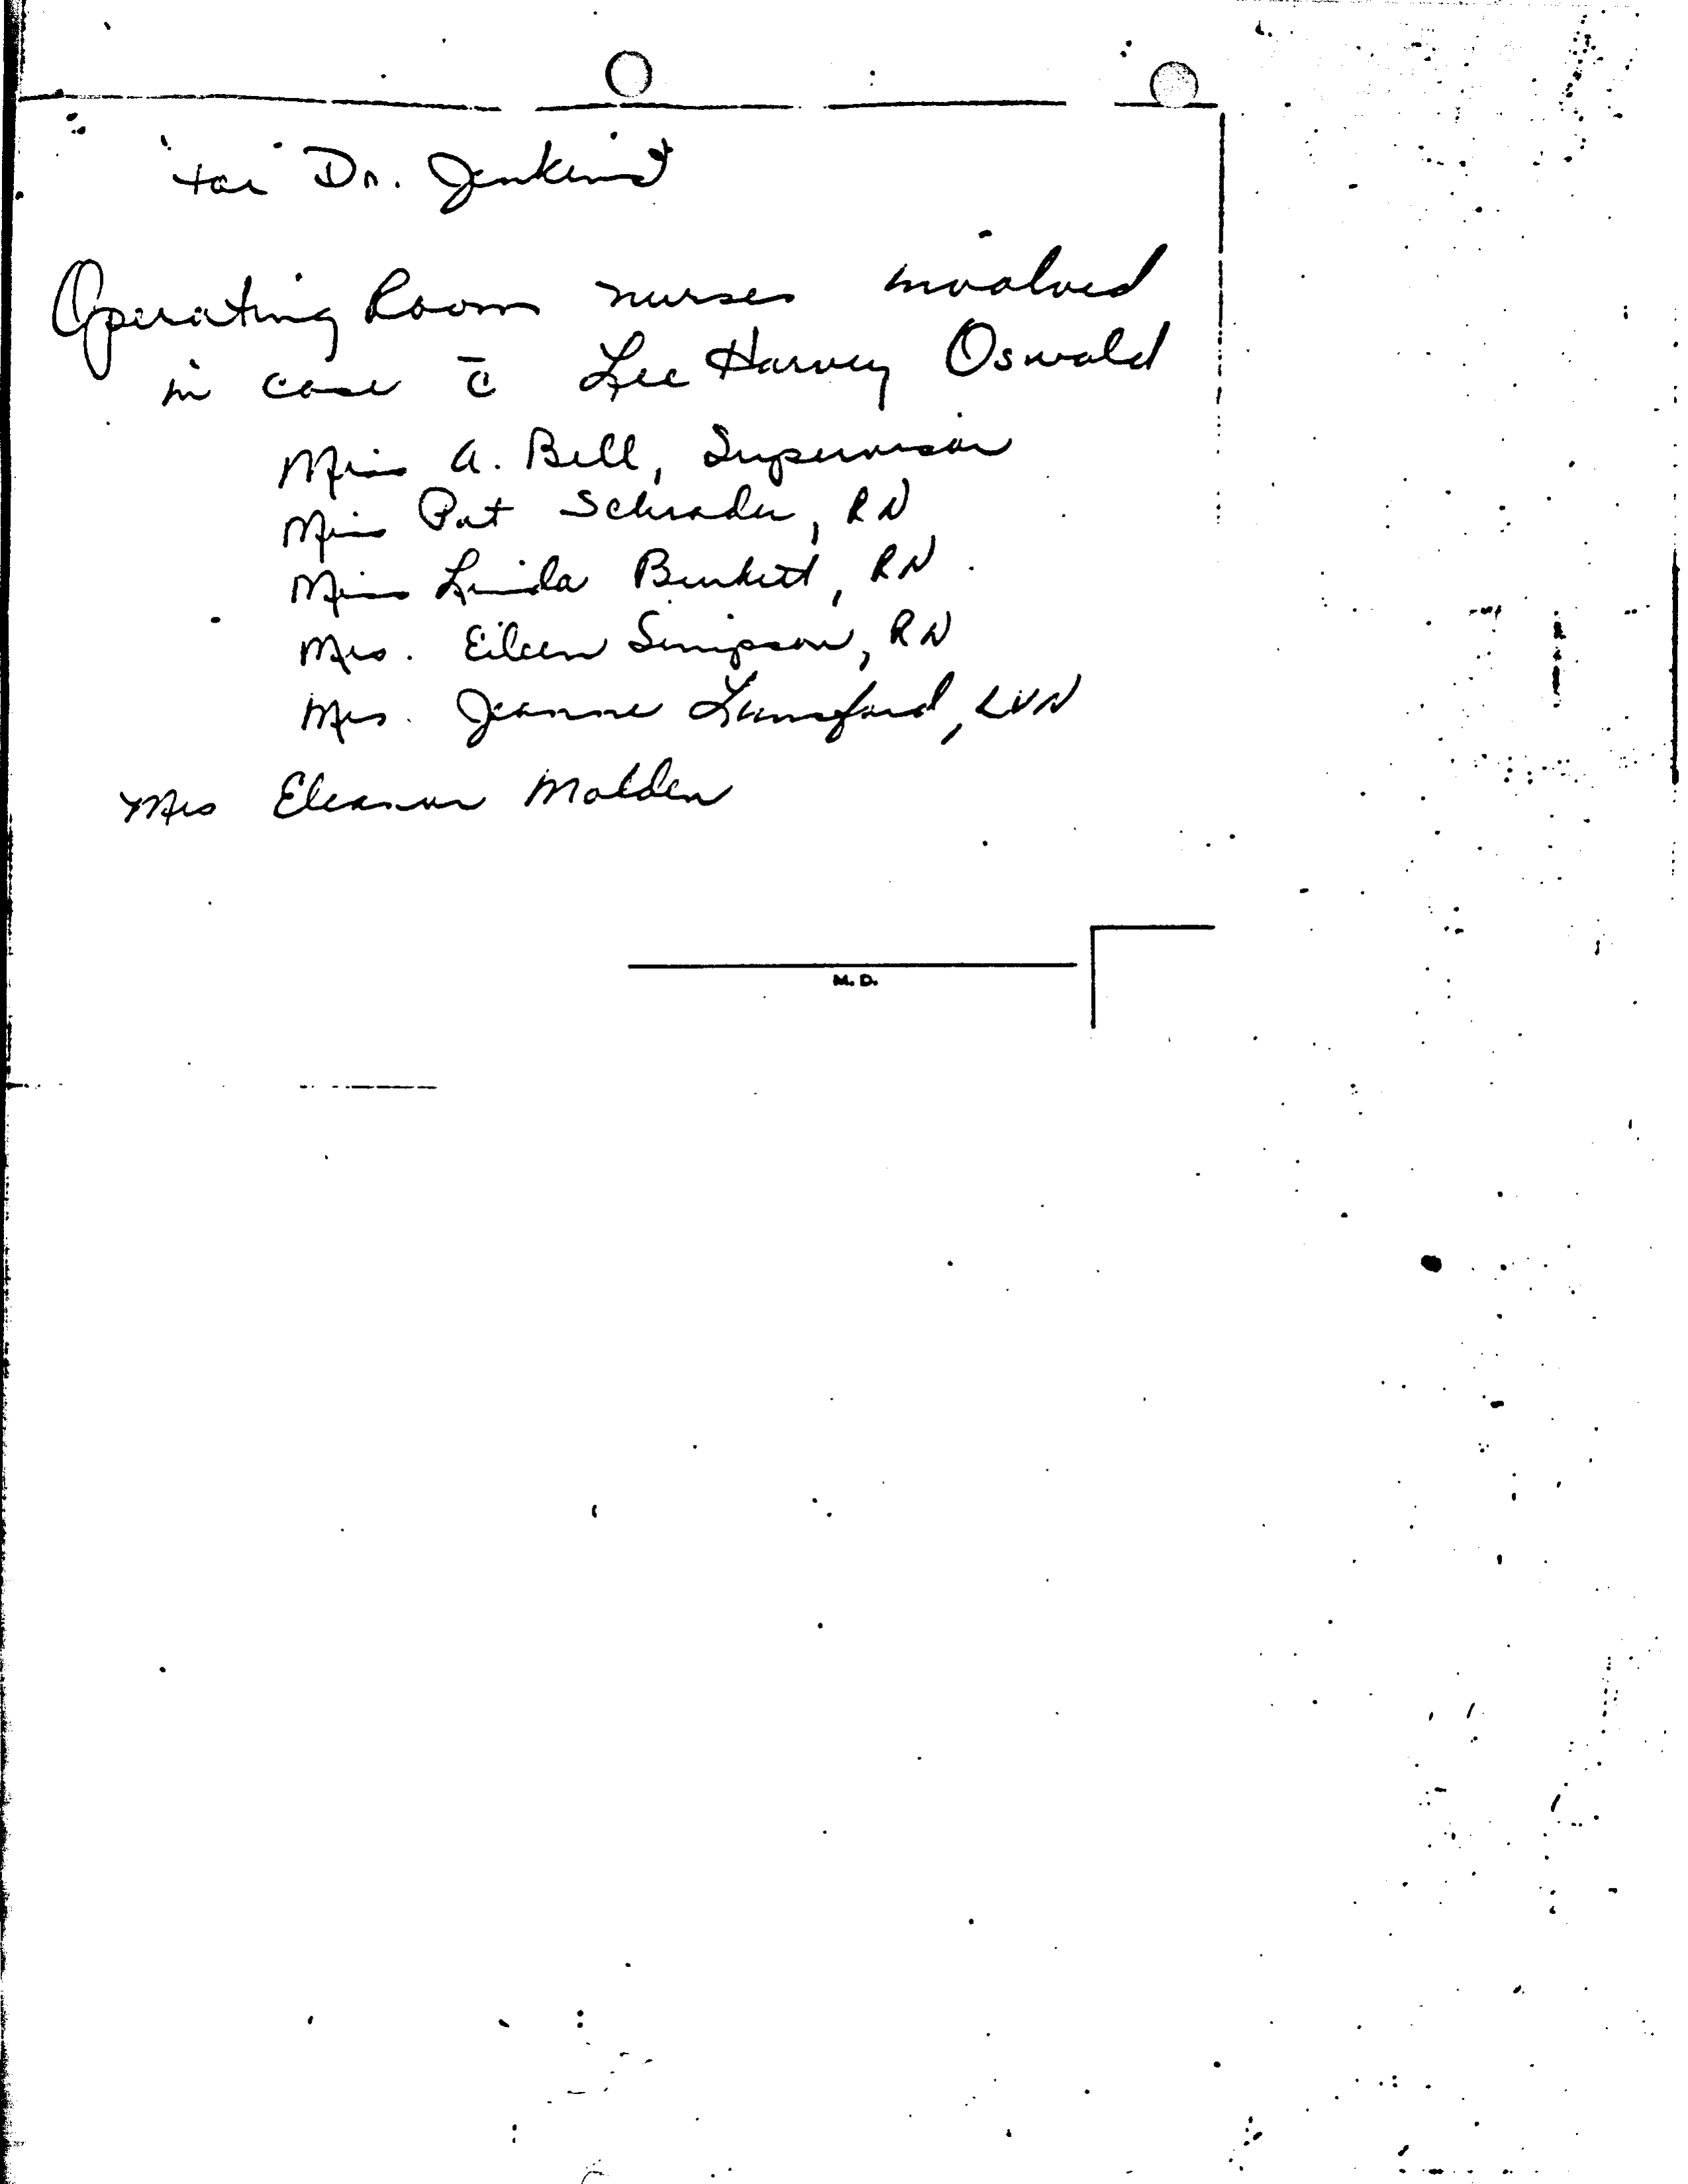 for Dr. Jenkins
Operating Room nurses involved
in case c̄ Lee Harvey Oswald
Miss A. Bell, Supervisor
Miss Pat Schrader, RN
Miss Linda Burkett, RN
Mrs. Eileen Simpson, RN
Mrs. Jeanne Lunsford, LVN
Mrs Eleanor Molden
M. D.